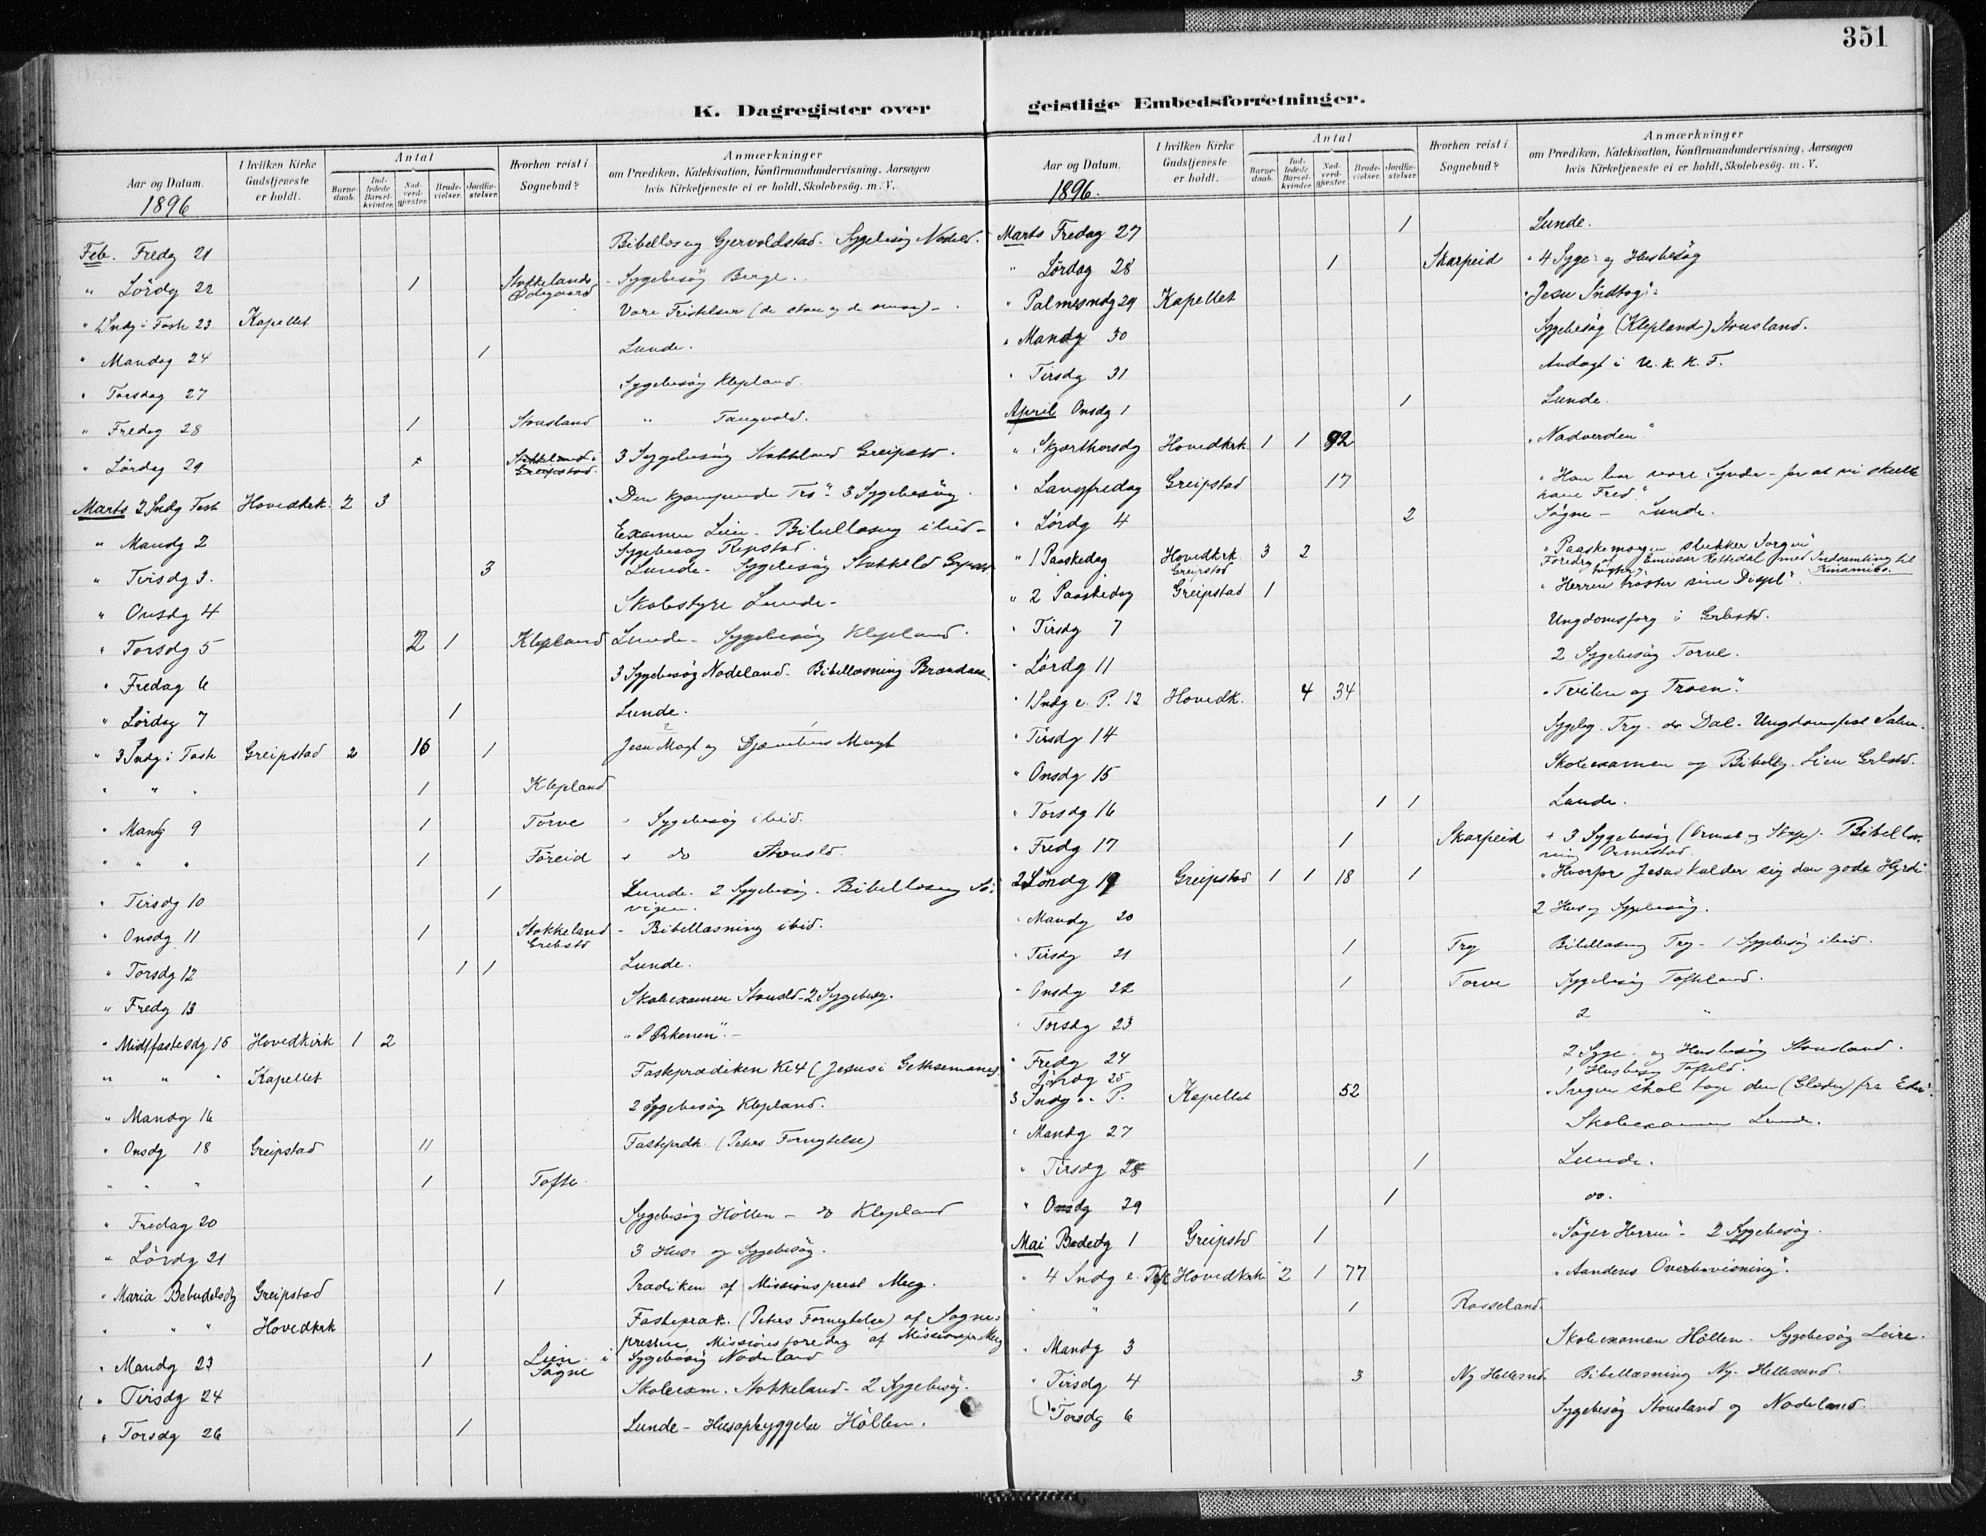 351
K. Dagregister over geistlige Embedsforretninger.
Aar og Datum.
1896
I hvilken Kirke Gudstjeneste er holdt.
Antal
Barnedaab.
Indledede Barselkvinder.
Nadverdgjæster.
Brudevielser.
Jordfæstelser.
Hvorhen reist i Sognebud?
Anmærkninger
om Prædiken, Katekisation, Konfirmandundervisning, Aarsagen
hvis Kirketjeneste ei er holdt, Skolebesøg. m. V.
Feb. Fredg 21 Gjervoldstad. Sygebesög Nodeld.
" Lördg 22 1 Stokkelands Ødegaard Sygebesög Berge.
" 1 Sndg i Fast 23 Kapellet Vore Fristelser (de store og de smaa) -
" Mandag 24 1 Lunde.
" Torsdag 27 Sygebesög Klepland.
" Fredag 28 1 Stousland " Tangvold.
" Lördag 29 3 Sygebesög Stokkeland Greipstd.
Marts 2 Sndg Fast Hovedkrk. 2 3 "Den kjæmpende Tro" 3 Sygebesög.
" Mandg 2 Examen Lien - Bibellæsning ibid -
Sygebesøg Repstad.
" Tirsdg 3. 3 Lunde - Sygebesög Stokkeld
" Onsdg 4 Skolestyre Lunde -
" Torsdg 5 2 1 Klepland Lunde - Sygebesög Klepland.
" Fredag 6 3 Sygebesög Nodeland. Bibellæsning
" Lördag 7 1 Lunde.
" 3 Sndg i Fast Greipstad 2 16 1 Jesu Magt og Djævelens Magt
" " " 1 Klepland
" Mandg 9 1 Torve " Sygebesög ibid.
" " " 1 Föreid " do Stousld.
" Tirsdg 10 1 Lunde. 2 Sygebesög. Bibellæsning
vigen.
" Onsdg 11 1 Stokkeland Grebstd - Bibellæsning ibid.
" Torsdg 12 1 1 Lunde.
" Fredg 13 Skolexamen Stousld - 2 Sygebesg.
" Midtfastesdg 15 Hovedkirk 1 2 "I Ørkenen". -
" " " Kapellet Fasteprædiken Kl 4 (Jesus i Gethsemane).
" Mandg 16 2 Sygebesög Klepland.
" Onsdg 18 Greipstad 11 Fasteprdk. (Peters Fornegtelse)
" " " 1 Tofte.
" Fredag 20 Sygebesög Höllen - do Klepland
" Lördg 21 3 Hus- og Sygebesög.
" Maria Bebudelsdg Greipstad 1 Prædiken af Missionsprest Meeg.
" " " Hovedkrk Fastepræk. (Peters Fornegtelse) af Sogne-
presten Missionsforedrag af
" Mandg 23 1 Lien i Sögne Sygebesög Nodeland
" Tirsdg 24 Skolexam. Stokkeland - 2 Sygebesög.
" Torsdg 26 1 Lunde - Husopbyggelse Höllen.
Aar og Datum.
1896.
I hvilken Kirke Gudstjeneste er holdt.
Antal
Barnedaab.
Indledede Barselkvinder.
Nadverdgjæster.
Brudevielser.
Jordfæstelser.
Hvorhen reist i Sognebud?
Anmærkninger
om Prædiken, Katekisation, Konfirmandundervisning, Aarsagen
hvis Kirketjeneste ei er holdt, Skolebesög. m. V.
Marts Fredag 27 1 Lunde.
" Lördag 28 1 Skarpeid " 4 Syge- og Husbesög
" Palmesndg 29 Kapellet "Jesu Indtog".
" Mandg 30 Sygebesög (Klepland) Stousland.
" Tirsdg 31 Andagt i U. k. k. F.
April Onsdg 1 1 Lunde.
" Skjærthorsdg Hovedkrk 1 1 92 "Nadverden."
" Langfredag Greipstad 17 "Han bar vore Synder - for at vi skulde
have Fred"
" Lördg 4 2 Sögne - Lunde.
" 1 Paaskedag Hovedkrk Greipstad 3 2 "Paaskemorgen slukker Sorgen"
Foredrag af Emissær Rettedal med Indsamling til Kinamis.
" 2 Paaskedag Greipstad 1 "Herren trøster sine Discpl".
" Tirsdg 7 Ungdomsforg i Grbstd.
" Lördg 11 2 Sygebesög Torve.
" 1 Sndg e. P. 12 Hovedk. 4 34 "Tvilen og Troen".
" Tirsdg 14 Sygebg. Try. do Dal - Ungdomsfest
" Onsdg 15 Skolexamen og Bibellg. Lien Grbstd.
" Torsdg 16 1 1 Lunde.
" Fredg 17 1 Skarpeid + 3 Sygebesög Bibellæs-
ning Ormestad.
2 Söndg 19 Greipstad 1 1 18 1 "Hvorfor Jesus kalder sig den gode Hyrde"
" Mandg 20 2 Hus og Sygebesög.
" Tirsdg 21 1 Try Bibellæsning Try - 1 Sygebesög ibid.
" Onsdg 22 1 Torve Sygebesög Tofteland.
" Torsdg 23 2 "
" Fredg 24 2 Syge- og Husbesög Stousland.
Lördg 25 1 Husbesög Tofteld.
3 Sndg e. P. Kapellet 52 "Ingen skal tage den (Glæden) fra Eder".
" Mandg 27 Skolexamen Lunde.
" Tirsdg 28 1 Lunde.
" Onsdg 29 1 do.
Mai Bededg 1 Greipstd 1 "Söger Herren" - 2 Sygebesög.
" 4 Sndg e. Hovedkrk 2 1 77 "Aandens Overbevisning".
" " 1 Rosseland.
" Mandg 3 Skolexamen Höllen. Sygebesög Leire.
" Tirsdg 4 3 Ny Hellesnd. Bibellæsning Ny-Hellesund.
" Torsdg 6 Sygebesög Stousland og Nodeland.